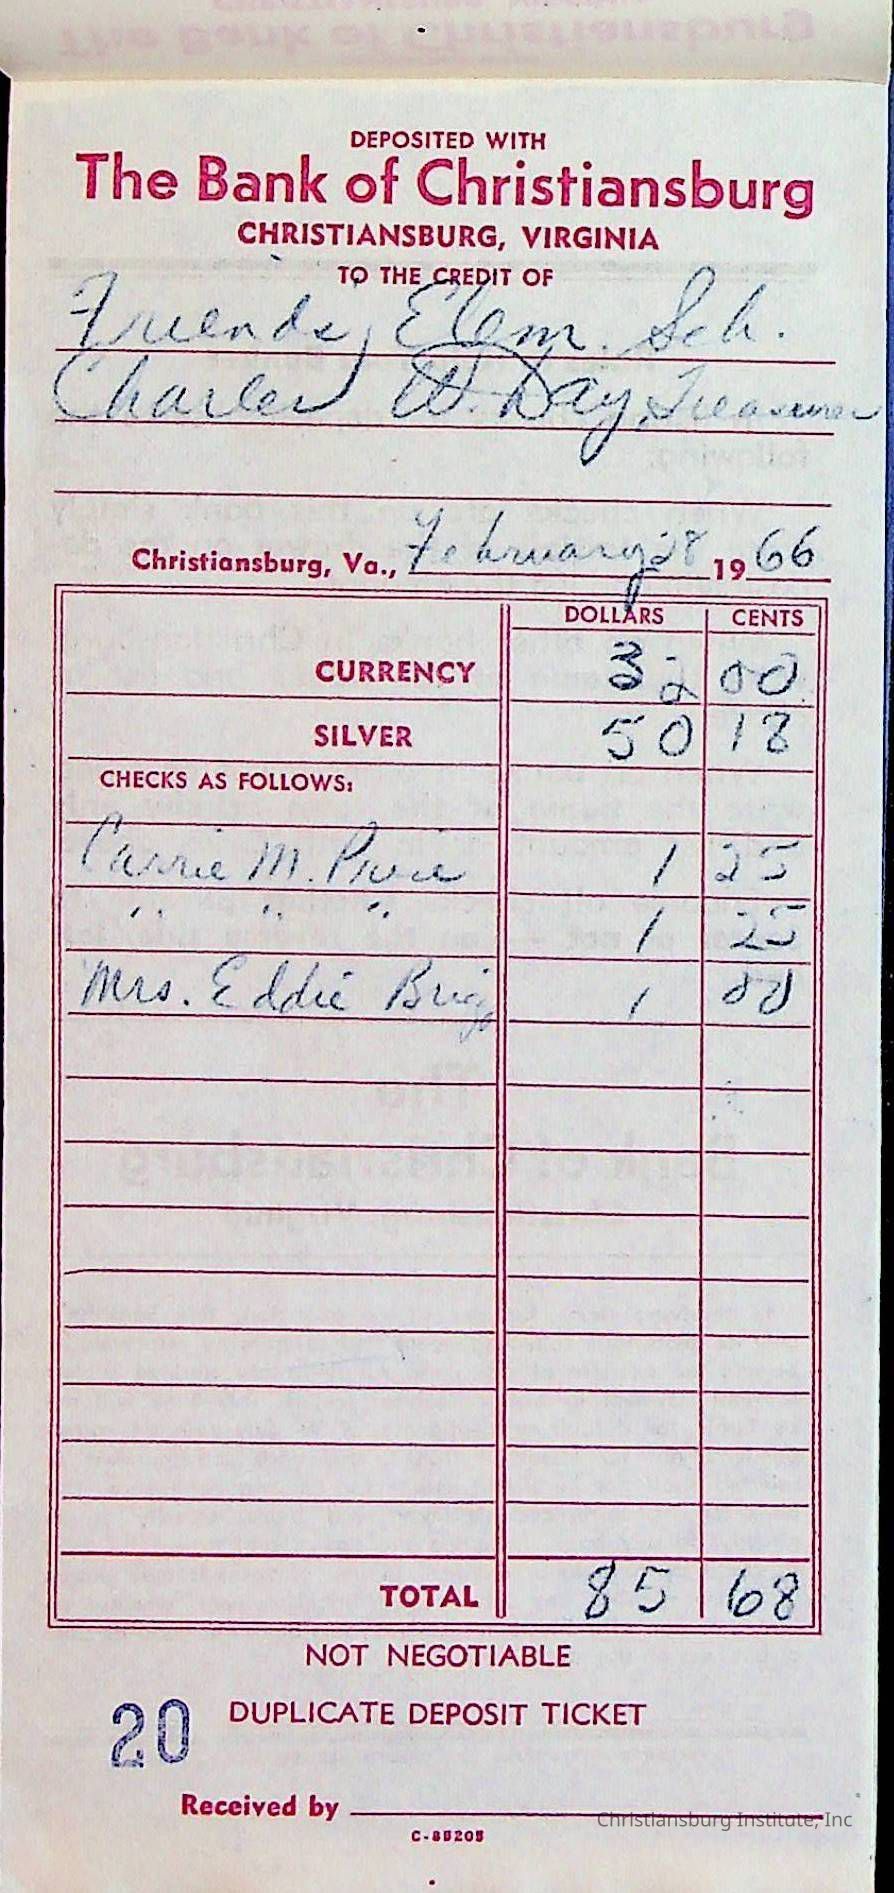 DEPOSITED WITH
The Bank of Christiansburg
CHRISTIANSBURG, VIRGINIA
TO THE CREDIT OF
Friends' Elem. Sch.
Charles W. Day, Treasurer
Christiansburg, Va., February 28 1966
DOLLARS CENTS
CURRENCY 32 00
SILVER 50 18
CHECKS AS FOLLOWS:
Carrie M. 1 25
" " " 1 25
Mrs. Eddie 1 00
TOTAL 85 68
NOT NEGOTIABLE
20 DUPLICATE DEPOSIT TICKET
Received by
Christiansburg Institute, Inc